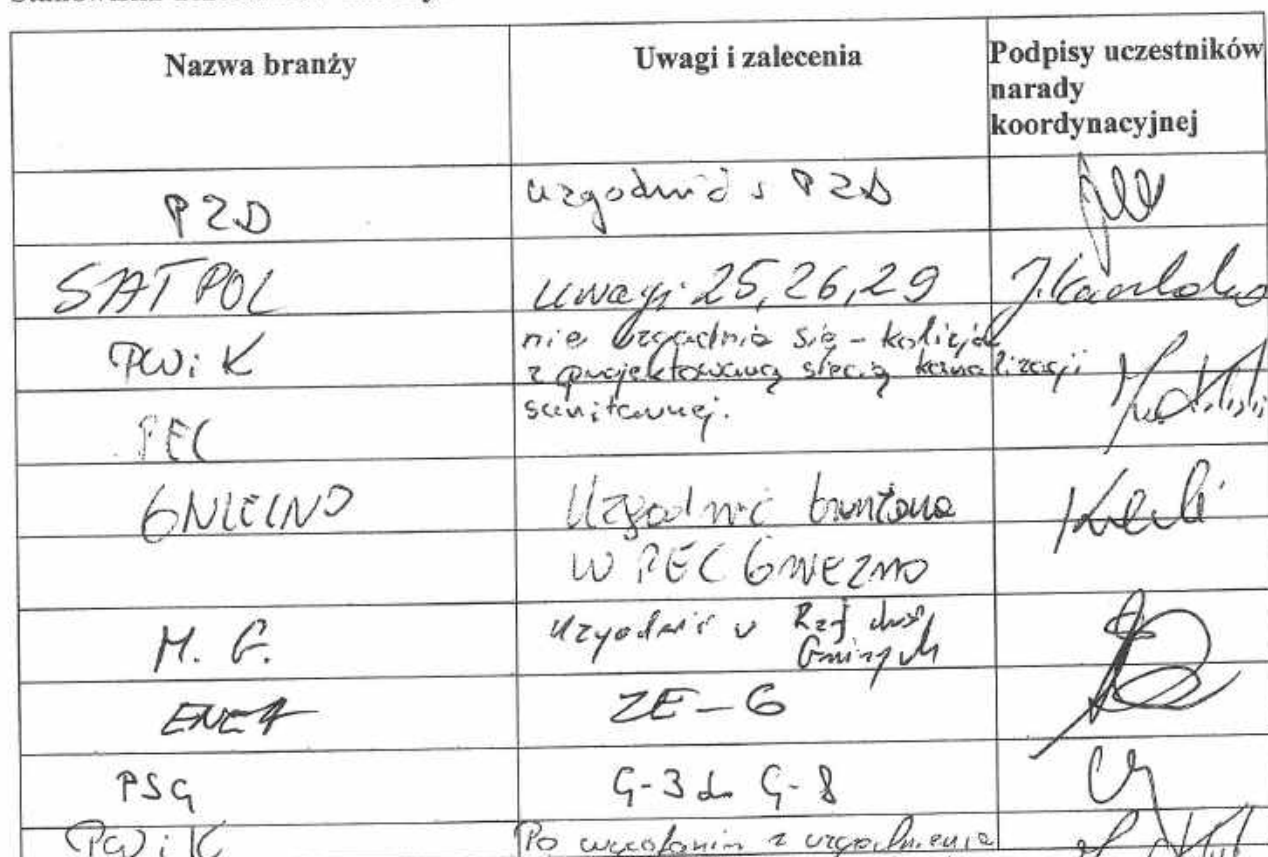 Nazwa branży
Uwagi i zalecenia
Podpisy uczestników
narady
koordynacyjnej
PZD
uzgodnić z PZD
SATPOL
uwagi 25, 26, 29
PWiK
nie uzgadnia się - kolizja
z projektowaną siecią kanalizacji
sanitarnej.
PEC
GNIEZNO
Uzgodnić
W PEC GNIEZNO
M. G.
Uzgodnić w
Gminnych
ENEA
ZE-6
PSG
G-3 do G-8
PWiK
Po wycofaniu z uzgodnienia